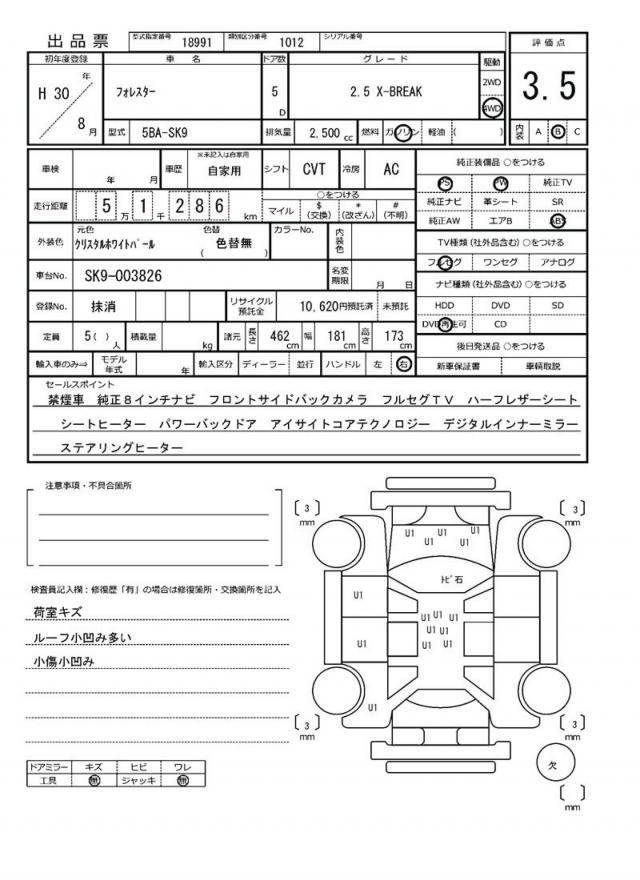 出品票 型式指定番号 18991 類別区分番号 1012 シリアル番号
評価点
3.5
初年度登録 車名 ドア数 グレード 駆動
H 30 年 8 月 フォレスター 5 D 2.5 X-BREAK 2WD 4WD
型式 5BA-SK9 排気量 2,500 cc 燃料 ガソリン 軽油 ( ) 内装 A B C
車検 年 月 車歴 ※未記入は自家用 自家用 シフト CVT 冷房 AC
純正装備品 ○をつける
PS PW 純正TV
純正ナビ 革シート SR
純正AW エアB ABS
走行距離 5 万 1 千 2 8 6 km ○をつける
マイル $ (交換) * (改ざん) # (不明)
外装色 元色 クリスタルホワイトパール 色替 ( 色替無 ) カラーNo. 内装色
TV種類 (社外品含む) ○をつける
フルセグ ワンセグ アナログ
車台No. SK9-003826 名変期限 月 日
ナビ種類 (社外品含む) ○をつける
HDD DVD SD
DVD再生可 CD
登録No. 抹消 リサイクル預託金 10,620円預託済 未預託
定員 5( ) 人 積載量 kg 諸元 長さ 462 cm 幅 181 cm 高さ 173 cm
後日発送品 ○をつける
新車保証書 車輌取説
輸入車のみ⇒ モデル年式 年 輸入区分 ディーラー 並行 ハンドル 左 右
セールスポイント
禁煙車 純正8インチナビ フロントサイドバックカメラ フルセグTV ハーフレザーシート
シートヒーター パワーバックドア アイサイトコアテクノロジー デジタルインナーミラー
ステアリングヒーター
注意事項・不具合箇所
検査員記入欄:修復歴「有」の場合は修復箇所・交換箇所を記入
荷室キズ
ルーフ小凹み多い
小傷小凹み
ドアミラー キズ ヒビ ワレ
工具 無 ジャッキ 無
[ 3 ] mm
[ 3 ] mm
U1 U1 U1
U1 U1
トビ石
U1
U1 U1 U1
U1 U1 U1
U1 U1
U1
U1
[ 3 ] mm
[ 3 ] mm
欠
[ ] mm